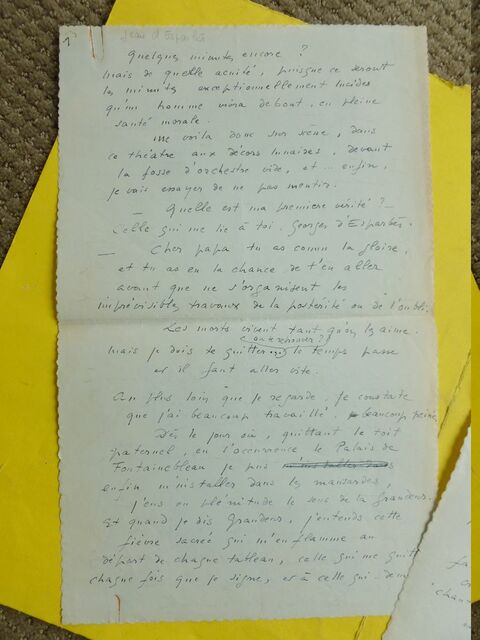 1
Jean d'Esparbès
Quelques minutes encore ?
Mais de quelle acuité, puisque ce seront
les minutes exceptionnellement lucides
qu'un homme vivra debout, en pleine
santé morale.
Me voilà donc sur scène, dans
ce théâtre aux décors lunaires, devant
la fosse d'orchestre vide, et... enfin,
je vais essayer de ne pas mentir.
— Quelle est ma première vérité ? —
Celle qui me lie à toi. Georges d'Esparbès.
— Cher papa tu as connu la gloire,
et tu as eu la chance de t'en aller
avant que ne s'organisent les
imprévisibles travaux de la postérité ou de l'oubli.
Les morts vivent tant qu'on les aime.
mais je dois te quitter... le temps passe
et il faut aller vite.
Au plus loin que je regarde, je constate
que j'ai beaucoup travaillé. beaucoup peiné
Dès le jour où, quittant le toit
paternel, en l'occurence, le Palais de
Fontainebleau je pus
enfin m'installer dans les mansardes,
j'eus en plénitude le sens de la Grandeur.
Et quand je dis Grandeur, j'entends cette
fièvre sacré qui m'enflamme au
départ de chaque tableau, celle qui me quitte
chaque fois que je signe, et à celle qui